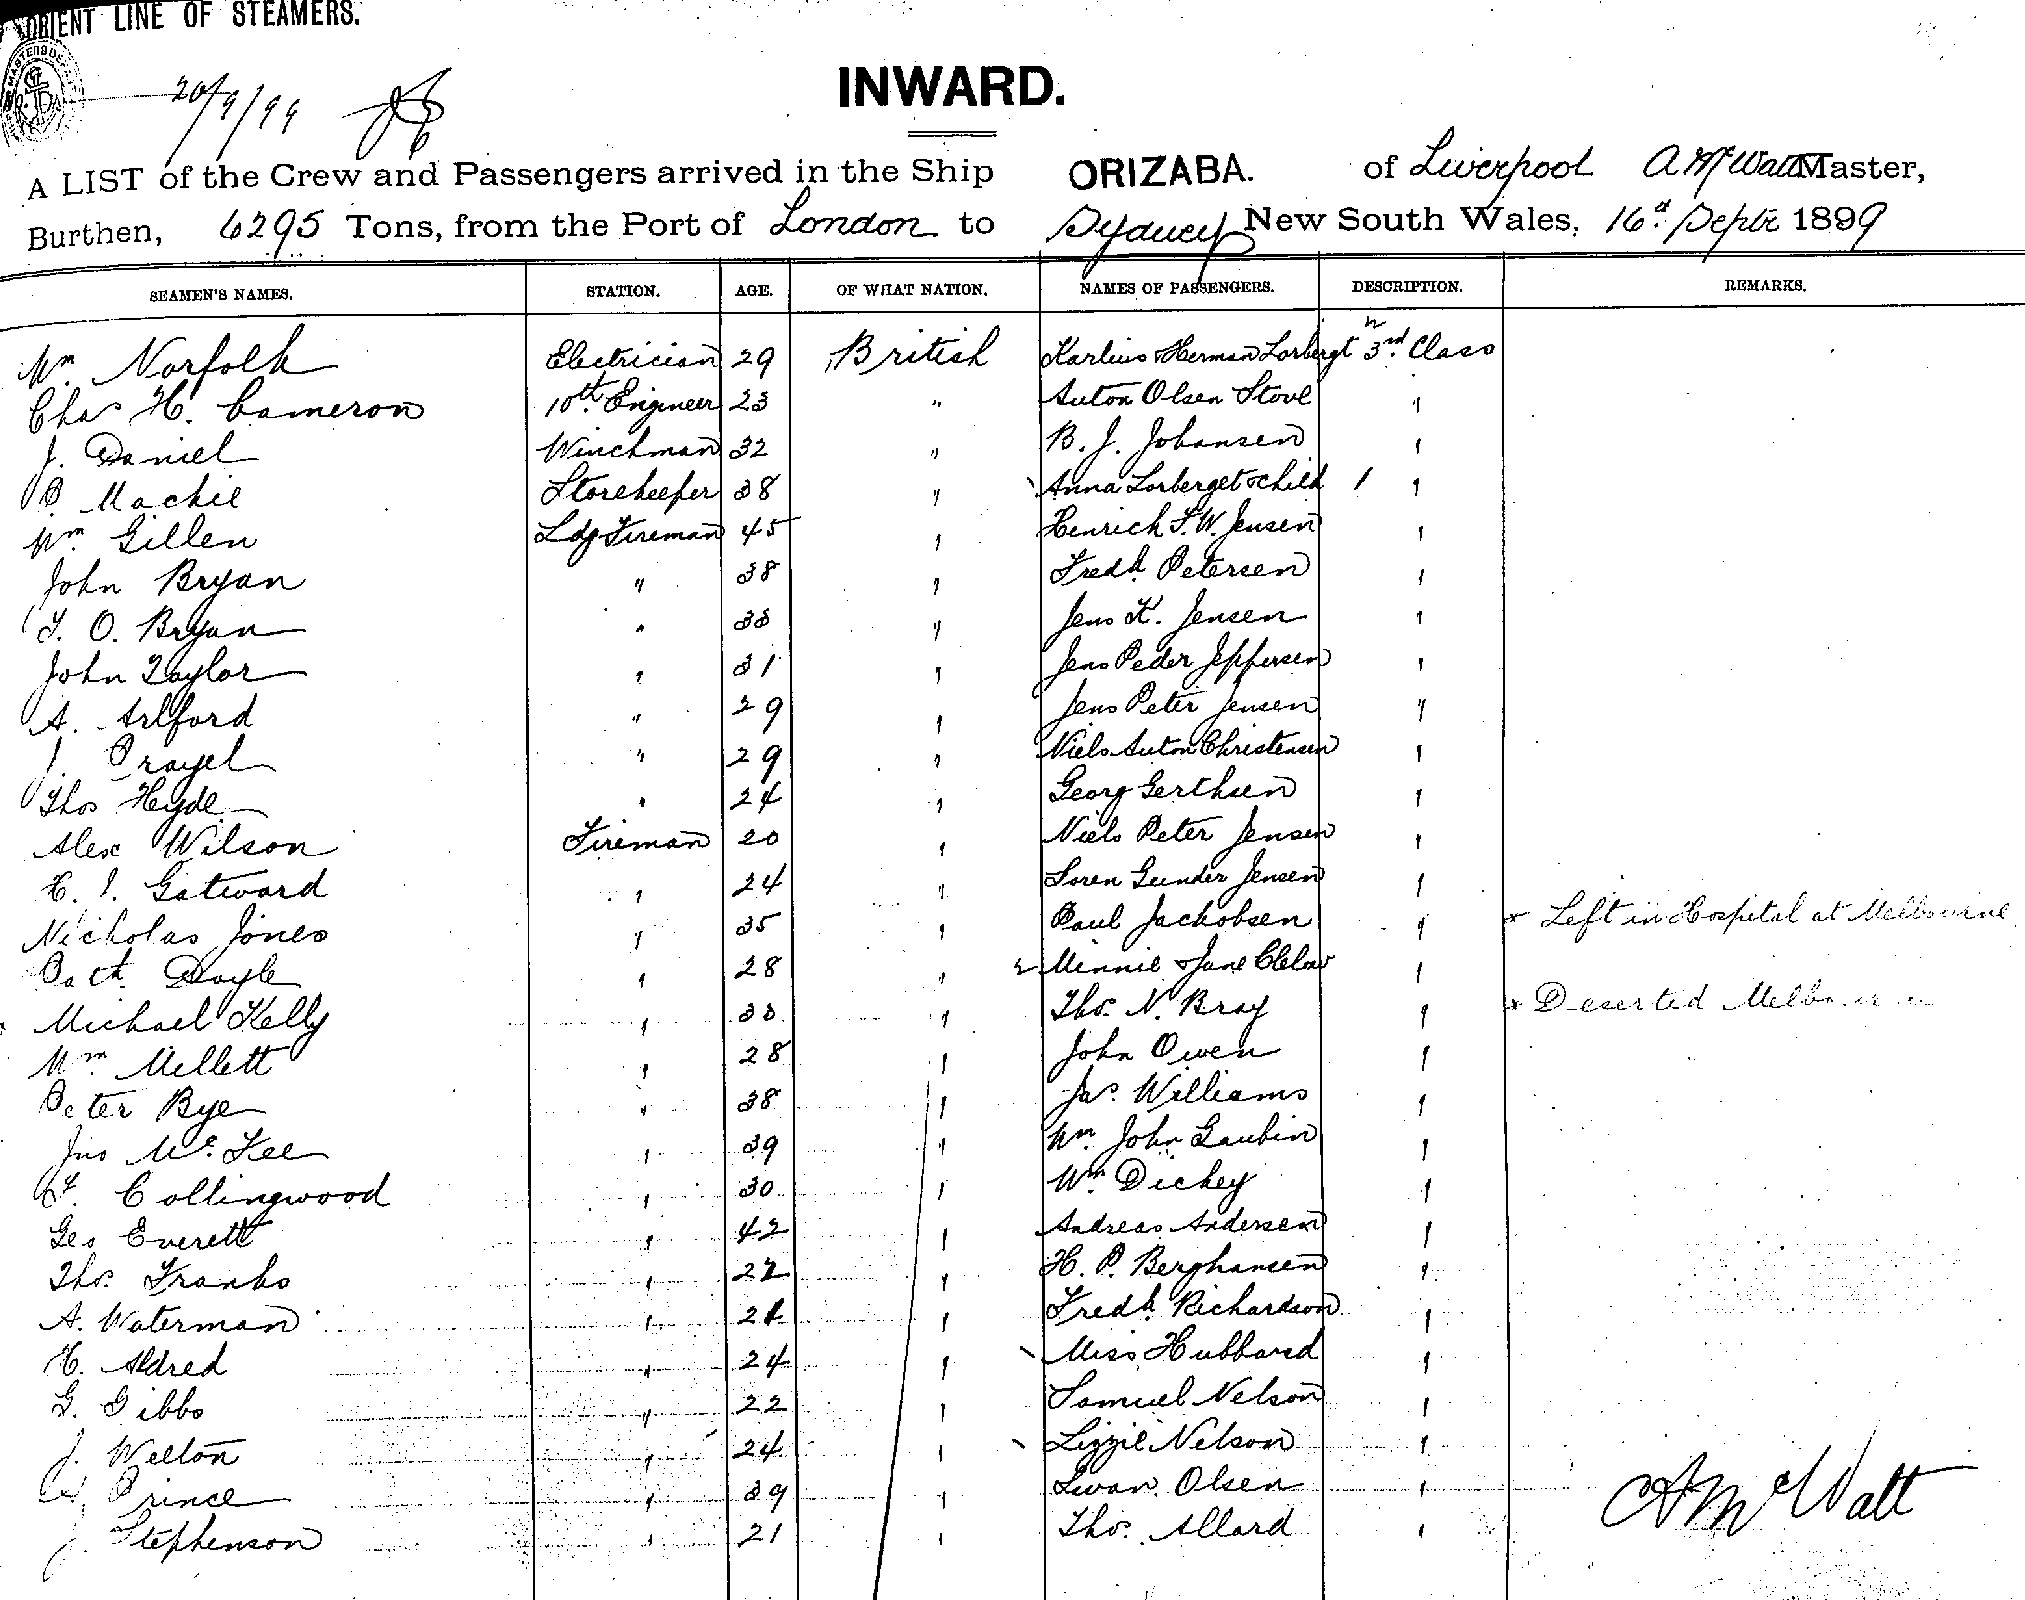 ORIENT LINE OF STEAMERS.
20/9/99
INWARD.
A LIST of the Crew and Passengers arrived in the Ship ORIZABA. of Liverpool A McWatt Master,
Burthen, 6295 Tons, from the Port of London to Sydney New South Wales, 16th Septr 1899
SEAMEN'S NAMES. STATION. AGE. OF WHAT NATION. NAMES OF PASSENGERS. DESCRIPTION. REMARKS.
Wm Norfolk Electrician 29 British Karlius Herman Lorbergt 3rd Class
Chas H. Cameron 10th Engineer 23 " Anton Olsen Stove "
J. Daniel Winchman 32 " B. J. Johansen "
Mackie Storekeeper 38 " Anna Lorberget & child 1 "
Wm Gillen Ldg Fireman 45 " Henrich F. W. Jensen "
John Bryan " 38 " Fredk Petersen "
T. O. Bryan " 38 " Jens K. Jensen "
John Taylor " 31 " Jens Peder Jeppersen "
A. Arlford " 29 " Jens Peter Jensen "
J. Prayel " 29 " Niels Anton Christensen "
Thos Heyde " 24 " Georg Gerthsen "
Alex Wilson Fireman 20 " Niels Peter Jensen "
H. J. Gatward " 24 " Soren Gunder Jensen "
Nicholas Jones " 35 " Paul Jackobsen " x Left in Hospital at Melbourne
Patk Doyle " 28 " 2 Minnie & Jane Clelow "
Michael Kelly " 33 " Thos. N. Bray " x Deserted Melbourne
Wm Mellett " 28 " John Owen "
Peter Bye " 38 " Jas. Williams "
Jno McFee " 39 " Wm John Gaubin "
Collingwood " 30 " Wm Dickey "
Geo Everett " 42 " Andreas Andersen "
Thos. Franks " 27 " H. P. Berghansen "
A. Waterman " 24 " Fredk Richardson "
H. Aldred " 24 " Miss Hubbard "
G. Gibbs " 22 " Samuel Nelson "
J. Welton " 24 " Lizzie Nelson "
Prince " 39 " Swan Olsen "
J. Stephenson " 21 " Thos. Allard "
A McWatt